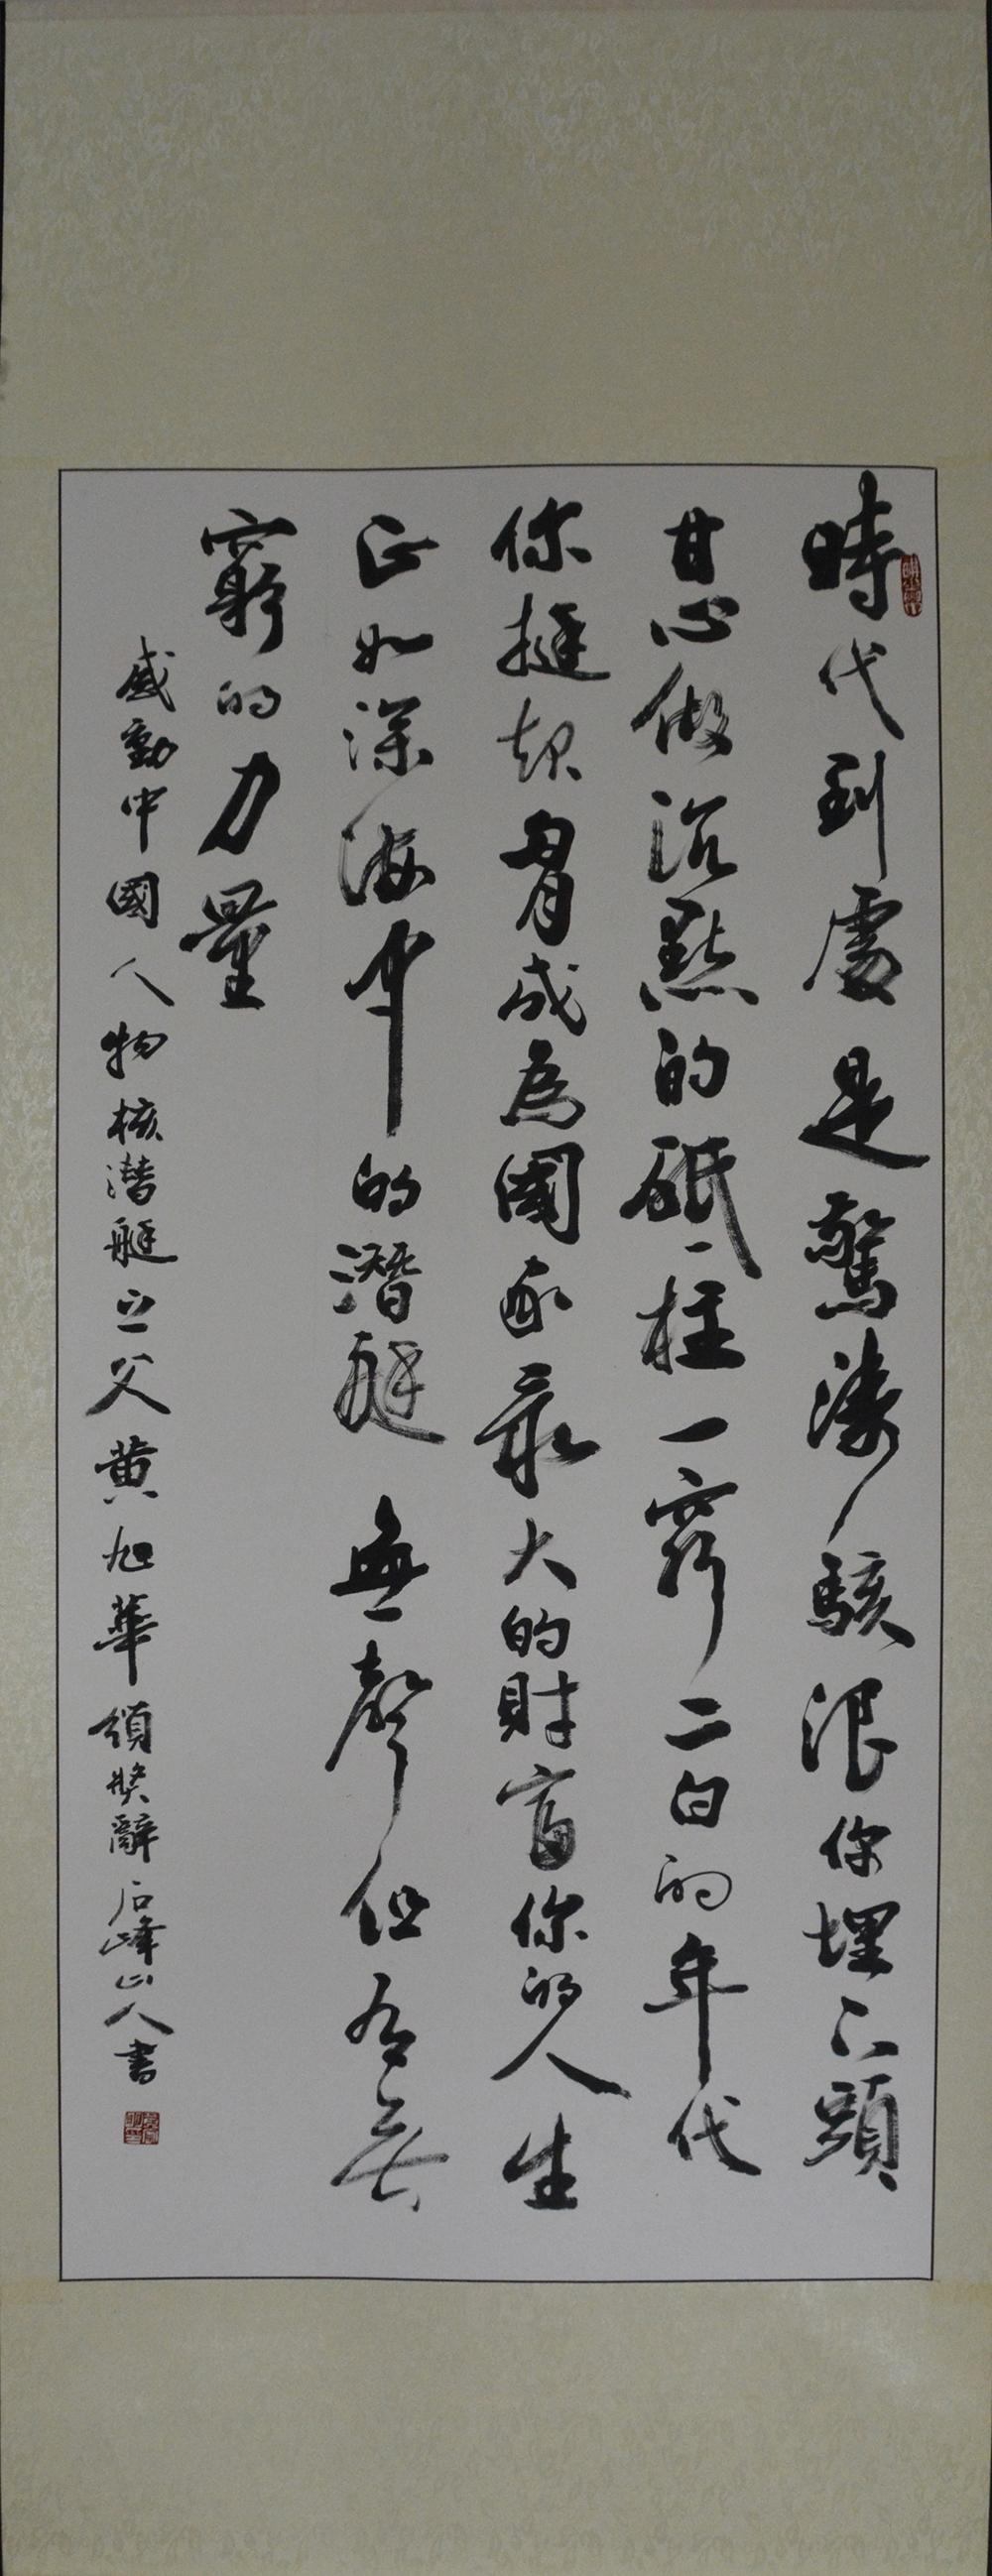 時代到處是驚濤駭浪你埋下頭
甘心做沉默的砥柱一窮二白的年代
你挺起胸成為國家最大的財富你的人生
正如深海中的潛艇無聲但有無
窮的力量
感動中國人物核潛艇之父黃旭華頒奬辭石峰山人書